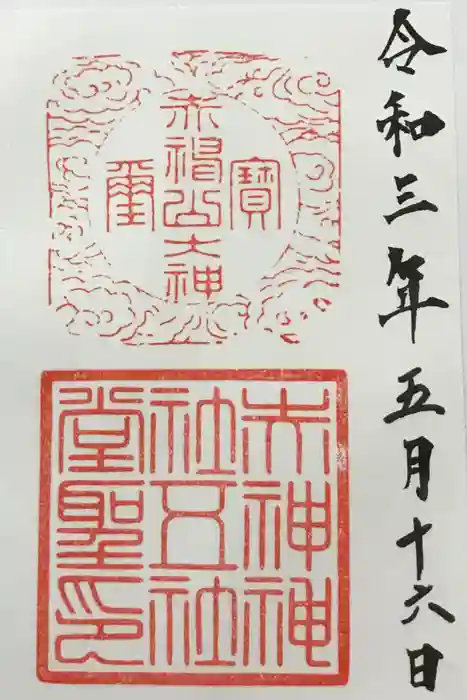 令和三年五月十六日
寶
赤 山大神
璽
赤神神
社五社
堂聖印